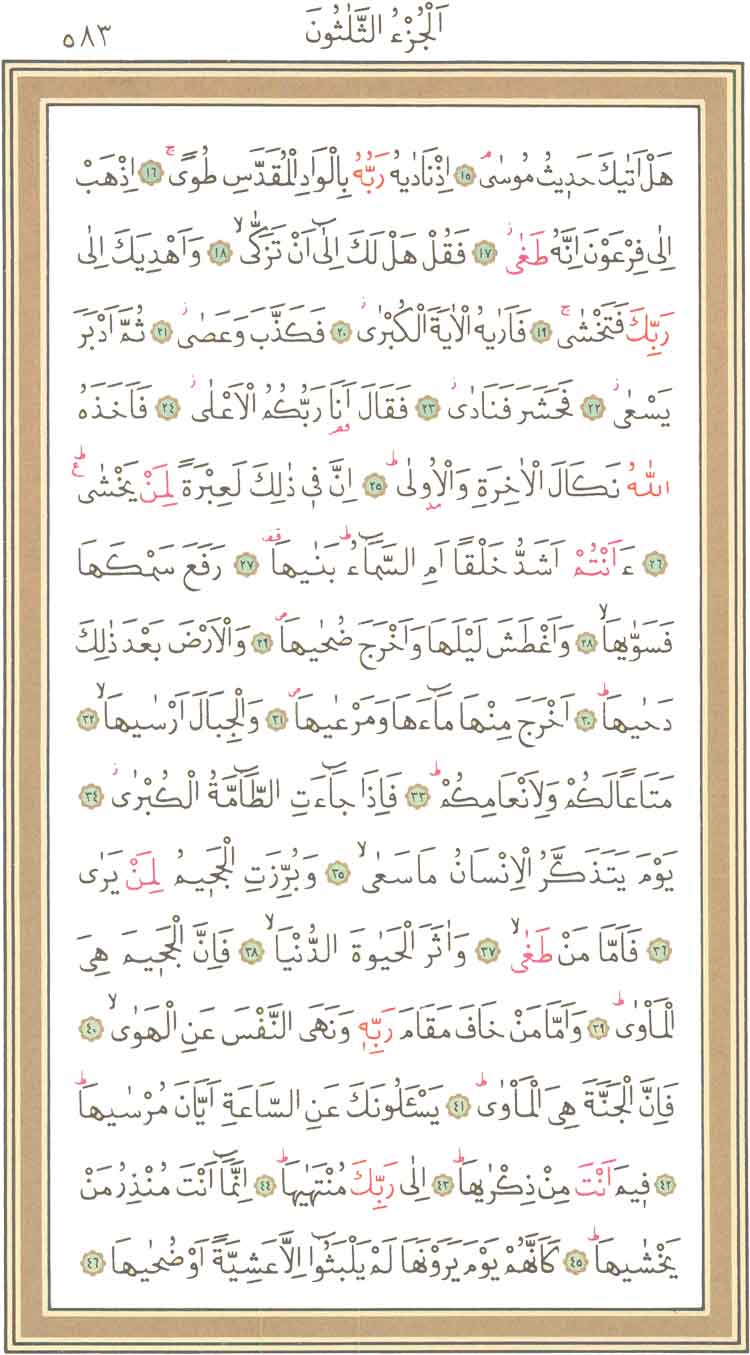 اَلْجُزْءُ الثَّلٰثُونَ ٥٨٣
هَلْ اَتٰيكَ حَد۪يثُ مُوسٰىۢ ﴿١٥﴾ اِذْ نَادٰيهُ رَبُّهُ بِالْوَادِ الْمُقَدَّسِ طُوًىۚ ﴿١٦﴾ اِذْهَبْ
اِلٰى فِرْعَوْنَ اِنَّهُ طَغٰىۘ ﴿١٧﴾ فَقُلْ هَلْ لَكَ اِلٰٓى اَنْ تَزَكّٰىۙ ﴿١٨﴾ وَاَهْدِيَكَ اِلٰى
رَبِّكَ فَتَخْشٰىۚ ﴿١٩﴾ فَاَرٰيهُ الْاٰيَةَ الْكُبْرٰىۘ ﴿٢٠﴾ فَكَذَّبَ وَعَصٰىۘ ﴿٢١﴾ ثُمَّ اَدْبَرَ
يَسْعٰىۘ ﴿٢٢﴾ فَحَشَرَ فَنَادٰىۘ ﴿٢٣﴾ فَقَالَ اَنَا۬ رَبُّكُمُ الْاَعْلٰىۘ ﴿٢٤﴾ فَاَخَذَهُ
اللّٰهُ نَكَالَ الْاٰخِرَةِ وَالْاُو۫لٰىۜ ﴿٢٥﴾ اِنَّ ف۪ي ذٰلِكَ لَعِبْرَةً لِمَنْ يَخْشٰىۜ ع
﴿٢٦﴾ ءَاَنْتُمْ اَشَدُّ خَلْقًا اَمِ السَّمَٓاءُۜ بَنٰيهَا۠ ﴿٢٧﴾ رَفَعَ سَمْكَهَا
فَسَوّٰيهَاۙ ﴿٢٨﴾ وَاَغْطَشَ لَيْلَهَا وَاَخْرَجَ ضُحٰيهَاۖ ﴿٢٩﴾ وَالْاَرْضَ بَعْدَ ذٰلِكَ
دَحٰيهَاۜ ﴿٣٠﴾ اَخْرَجَ مِنْهَا مَٓاءَهَا وَمَرْعٰيهَاۖ ﴿٣١﴾ وَالْجِبَالَ اَرْسٰيهَاۙ ﴿٣٢﴾
مَتَاعًا لَكُمْ وَلِاَنْعَامِكُمْۜ ﴿٣٣﴾ فَاِذَا جَٓاءَتِ الطَّٓامَّةُ الْكُبْرٰىۘ ﴿٣٤﴾
يَوْمَ يَتَذَكَّرُ الْاِنْسَانُ مَا سَعٰىۙ ﴿٣٥﴾ وَبُرِّزَتِ الْجَح۪يمُ لِمَنْ يَرٰى
﴿٣٦﴾ فَاَمَّا مَنْ طَغٰىۙ ﴿٣٧﴾ وَاٰثَرَ الْحَيٰوةَ الدُّنْيَاۙ ﴿٣٨﴾ فَاِنَّ الْجَح۪يمَ هِيَ
الْمَأْوٰىۜ ﴿٣٩﴾ وَاَمَّا مَنْ خَافَ مَقَامَ رَبِّه۪ وَنَهَى النَّفْسَ عَنِ الْهَوٰىۙ ﴿٤٠﴾
فَاِنَّ الْجَنَّةَ هِيَ الْمَأْوٰىۜ ﴿٤١﴾ يَسْـَٔلُونَكَ عَنِ السَّاعَةِ اَيَّانَ مُرْسٰيهَاۜ
﴿٤٢﴾ ف۪يمَ اَنْتَ مِنْ ذِكْرٰيهَاۜ ﴿٤٣﴾ اِلٰى رَبِّكَ مُنْتَهٰيهَاۜ ﴿٤٤﴾ اِنَّمَٓا اَنْتَ مُنْذِرُ مَنْ
يَخْشٰيهَاۜ ﴿٤٥﴾ كَاَنَّهُمْ يَوْمَ يَرَوْنَهَا لَمْ يَلْبَثُٓوا اِلَّا عَشِيَّةً اَوْ ضُحٰيهَا ﴿٤٦﴾